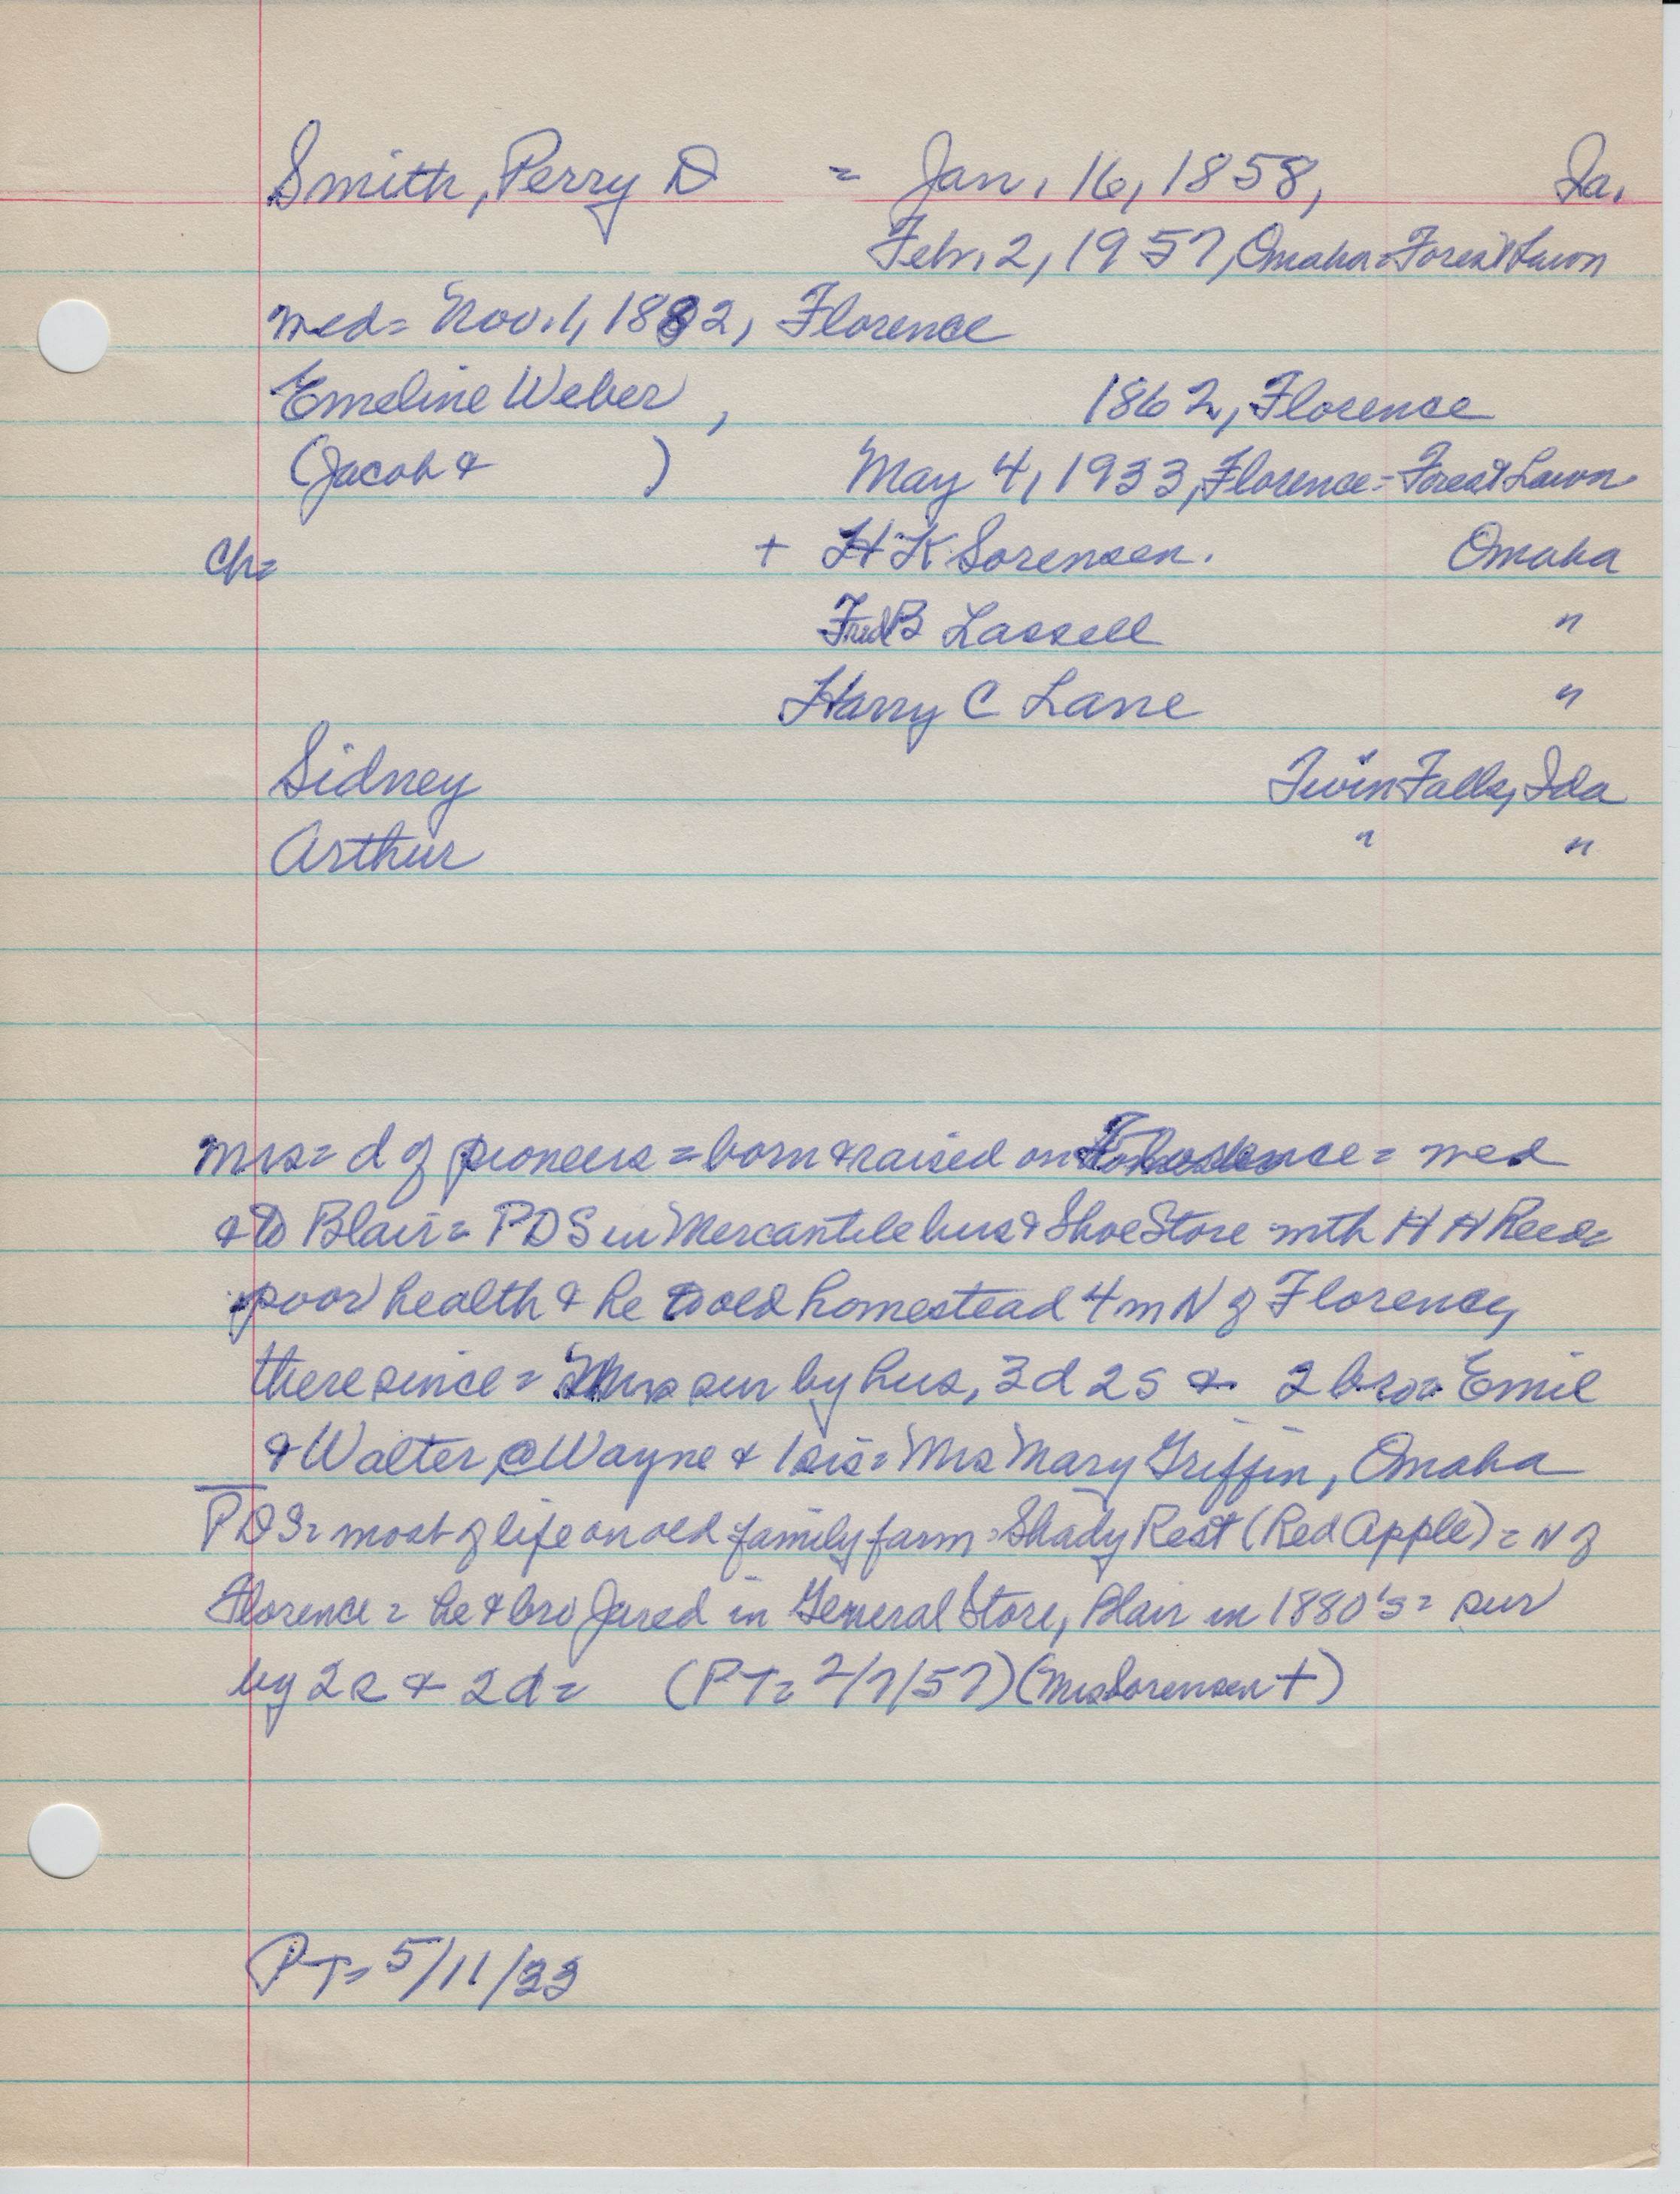 Smith, Perry D = Jan. 16, 1858, Ia.
Feb. 2, 1957, Omaha = Forest Lawn
med = Nov. 1, 1882, Florence
Emeline Weber, 1862, Florence
(Jacob & ) May 4, 1933, Florence = Forest Lawn
Ch = + H K Sorensen. Omaha
Fred B Lassell "
Harry C Lane "
Sidney Twin Falls, Ida
Arthur " "
mrs = d of pioneers = born & raised on = med
& to Blair = P D S in Mercantile bus & Shoe Store with H H Reed =
poor health & he to old homestead 4 m N of Florence,
there since = sur by hus, 3 d 2 s & 2 bros = Emil
& Walter @ Wayne & 1 sis = Mrs Mary Griffin, Omaha
P D S = most of life on old family farm = Shady Rest (Red Apple) = N of
Florence = he & bro Jared in General Store, Blair in 1880's = sur
by 2 s & 2 d = (PT = 2/7/57) (Mrs Sorensen +)
PT = 5/11/33